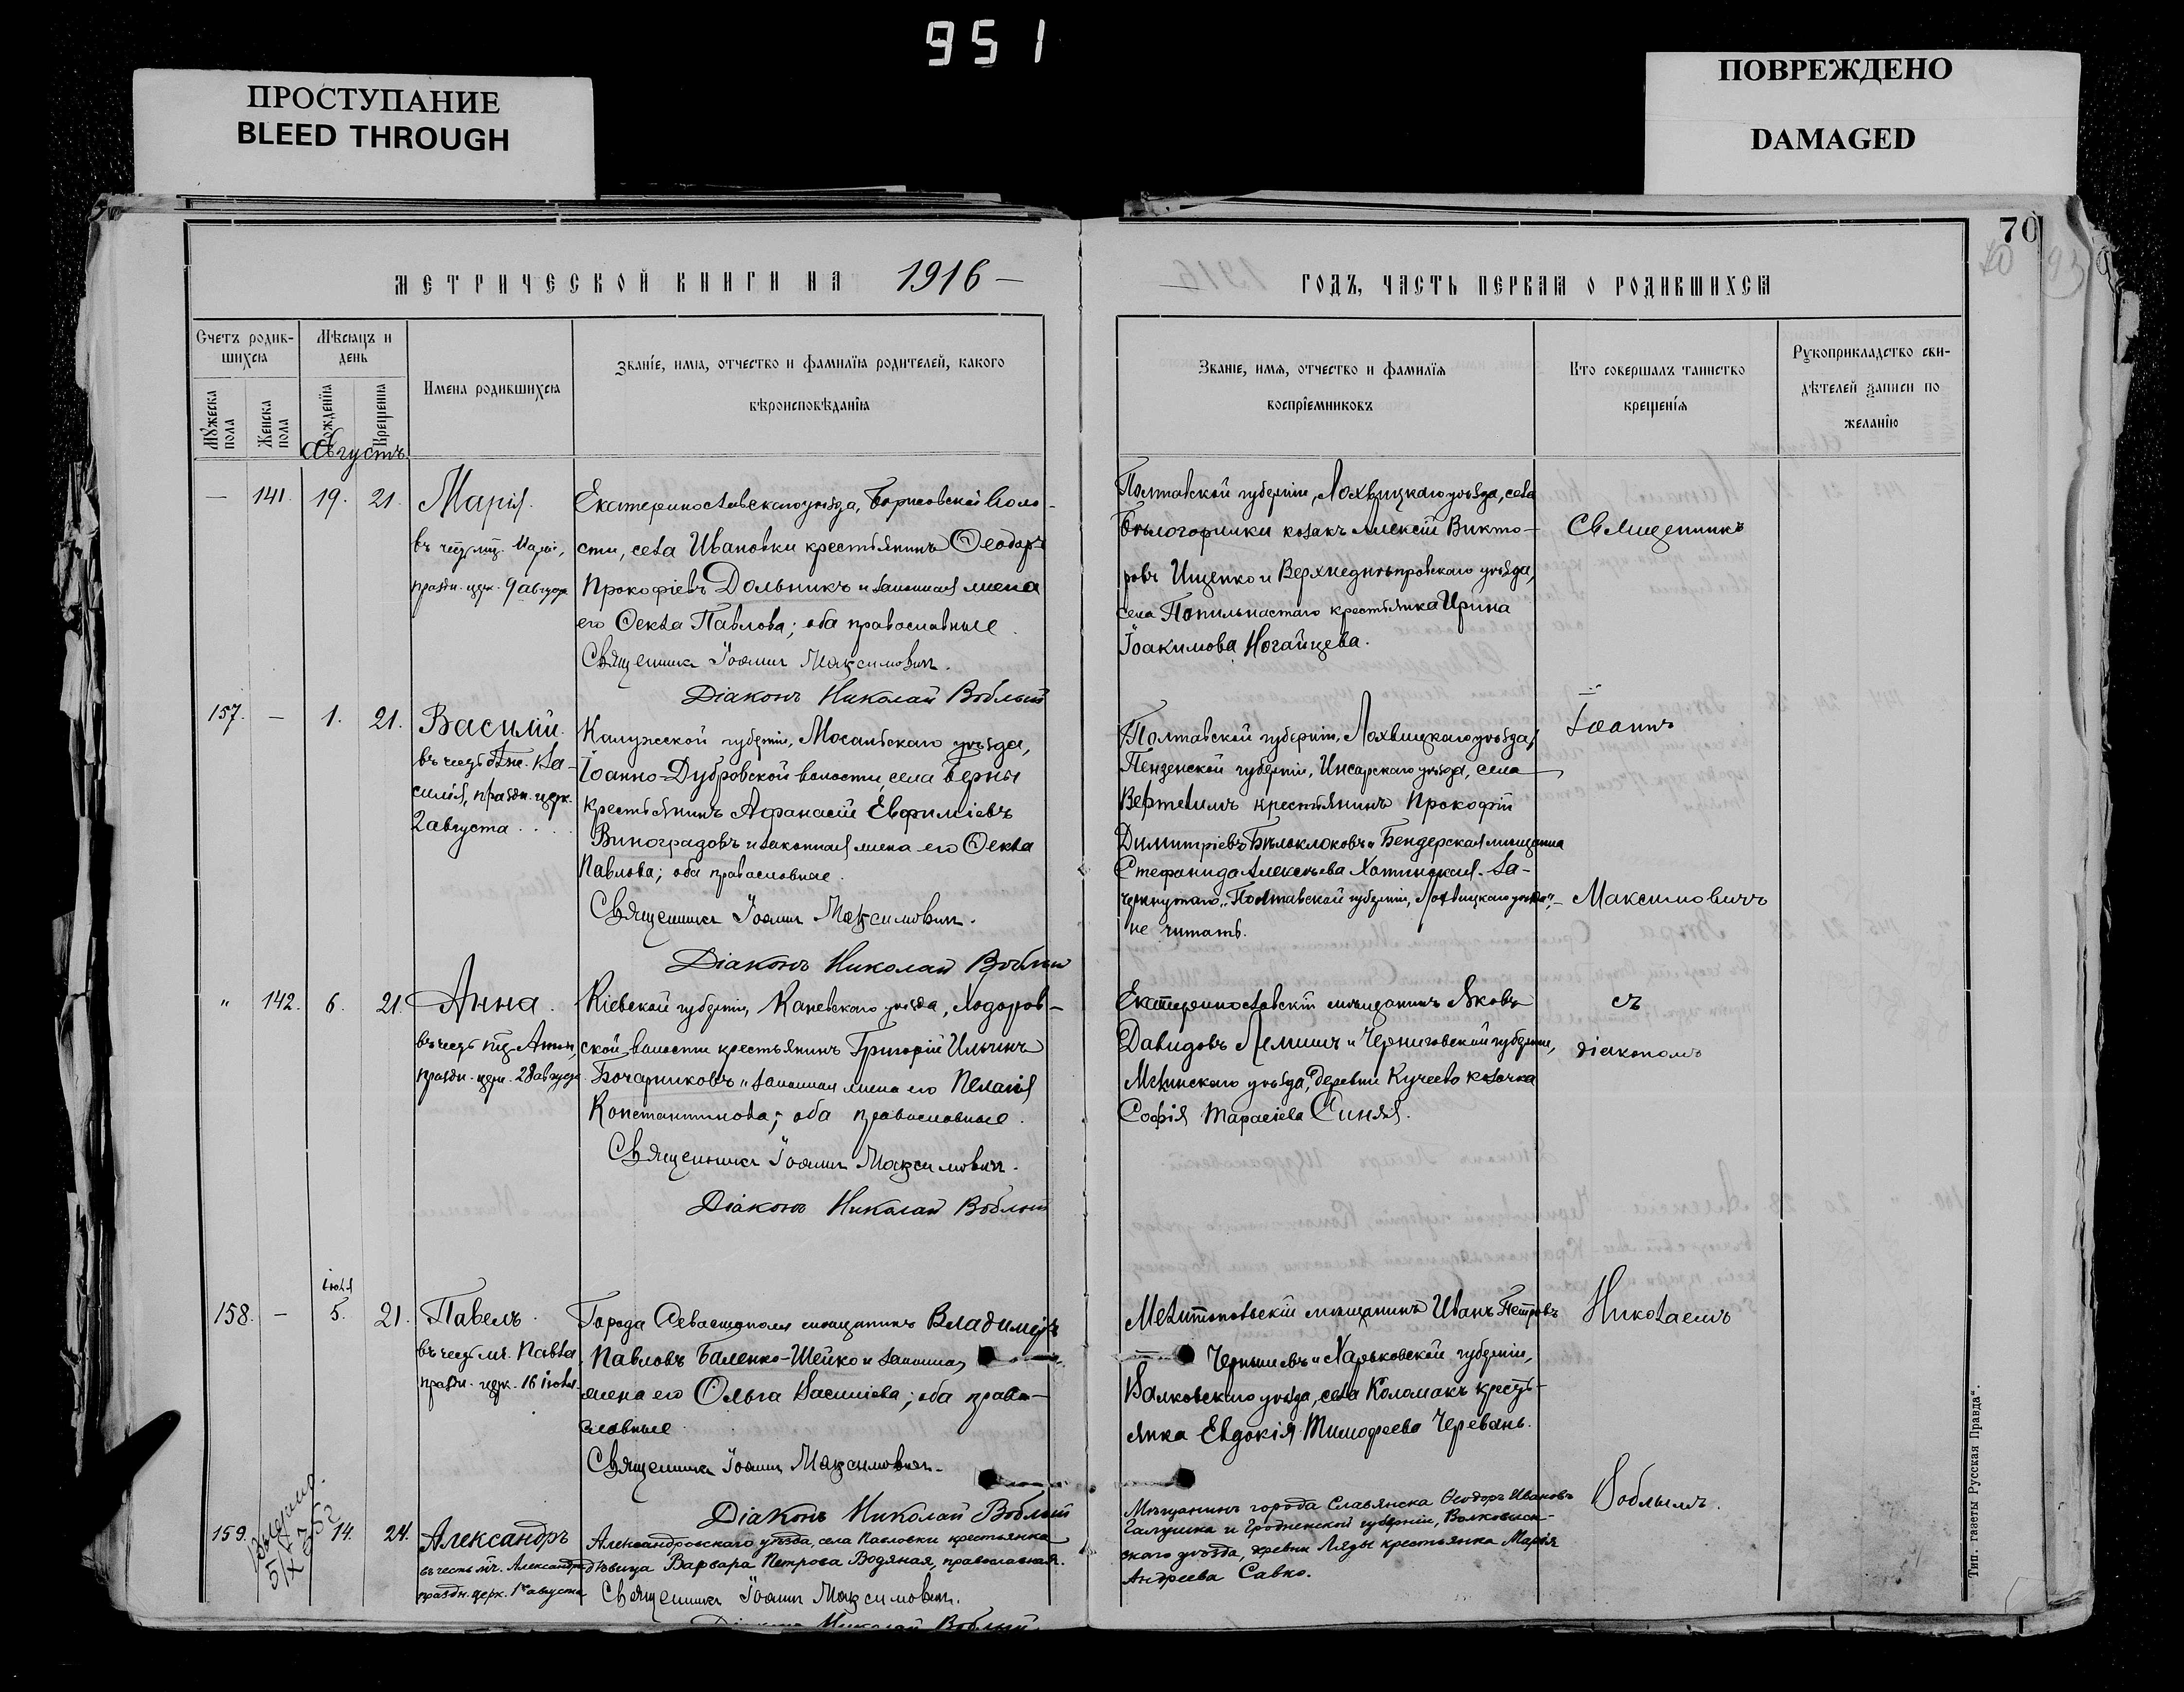 951
ПРОСТУПАНИЕ
BLEED THROUGH
ПОВРЕЖДЕНО
DAMAGED
70
МЕТРИЧЕСКОЙ КНИГИ НА 1916 —
ГОДЪ, ЧАСТЬ ПЕРВАЯ О РОДИВШИХСЯ
Счетъ родив-
шихся
Мѣсяцъ и
день
Мужеска
пола
Женска
пола
Рожденія
Крещенія
Имена родившихся
Званіе, имя, отчество и фамилія родителей, какого
вѣроисповѣданія
Званіе, имя, отчество и фамилія
воспріемниковъ
Кто совершалъ таинство
крещенія
Рукоприкладство сви-
дѣтелей записи по
желанію
Августъ
— 141. 19. 21. Марія.
въ честь Маріи,
праздн. церк. 9 августа
Екатеринославскаго уѣзда, Борисовской воло-
сти, села Ивановки крестьянинъ Ѳеодоръ
Прокофіевъ Дольникъ и законная жена
его Ѳекла Павлова; оба православные.
Священникъ Іоаннъ Максимовичъ.
Діаконъ Николай Воблый
Полтавской губерніи, Лохвицкаго уѣзда, села
Бѣлогорилки козакъ Алексій Викто-
ровъ Ищенко и Верхнеднѣпровскаго уѣзда,
села Попильнастаго крестьянка Ирина
Іоакимова Ногайцева.
Священникъ
157. — 1. 21. Василій.
въ честь блж. Ва-
силія, праздн. церк.
2 августа
Калужской губерніи, Мосальскаго уѣзда,
Іоанно-Дубровской волости, села Берны
крестьянинъ Афанасій Евфиміевъ
Виноградовъ и законная жена его Ѳекла
Павлова; оба православные.
Священникъ Іоаннъ Максимовичъ.
Діаконъ Николай Воблый
Полтавской губерніи, Лохвицкаго уѣзда,
Пензенской губерніи, Инсарскаго уѣзда, села
Вертелимъ крестьянинъ Прокофій
Димитріевъ Бѣлоклоковъ и Бендерская мѣщанка
Стефанида Алексѣева Хотинская. За-
черкнутаго „Полтавской губерніи, Лохвицкаго уѣзда“, —
не читать.
Іоаннъ
Максимовичъ
" 142. 6. 21. Анна.
въ честь прц. Анны,
праздн. церк. 28 августа
Кіевской губерніи, Каневскаго уѣзда, Ходоров-
ской волости крестьянинъ Григорій Ильинъ
Бочарниковъ и законная жена его Пелагія
Константинова; оба православные.
Священникъ Іоаннъ Максимовичъ.
Діаконъ Николай Воблый
Екатеринославскій мѣщанинъ Яковъ
Давидовъ Лемишъ и Черниговской губерніи,
Мглинскаго уѣзда, деревни Кучеево козачка
Софія Тарасіева Синяя.
съ
діакономъ
іюля
158. — 5. 21. Павелъ.
въ честь мч. Павла,
праздн. церк. 16 іюля.
Города Севастополя мѣщанинъ Владиміръ
Павловъ Баленко-Шейко и законная
жена его Ольга Василіева; оба право-
славные
Священникъ Іоаннъ Максимовичъ.
Діаконъ Николай Воблый
Мелитопольскій мѣщанинъ Иванъ Петровъ
Чернышевъ и Харьковской губерніи,
Валковскаго уѣзда, села Коломакъ кресть-
янка Евдокія Тимофеева Черевань.
Николаемъ
159. 14. 24. Александръ
въ честь мч. Александра
праздн. церк. 1го августа
Александровскаго уѣзда, села Павловки крестьянка
дѣвица Варвара Петрова Водяная, православная.
Священникъ Іоаннъ Максимовичъ.
Діаконъ Николай Воблый.
Мѣщанинъ города Славянска Ѳеодоръ Ивановъ
Галушка и Гродненской губерніи, Волковыс-
скаго уѣзда, деревни Ляды крестьянка Марія
Андреева Савко.
Воблымъ.
Тип. газеты Русская Правда“.